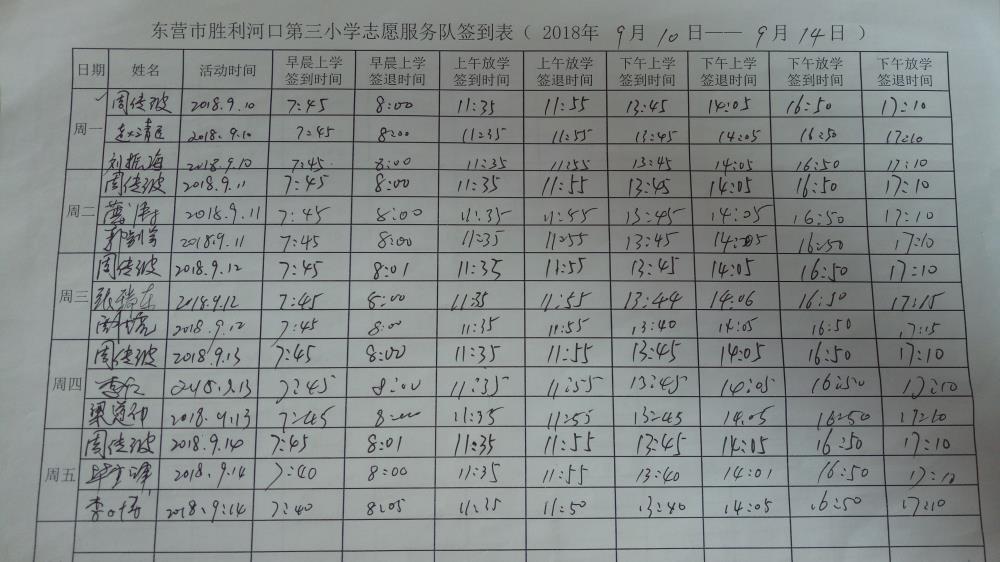 东营市胜利河口第三小学志愿服务队签到表（ 2018年 9月 10日—— 9月 14日 ）
日期 姓名 活动时间 早晨上学签到时间 早晨上学签退时间 上午放学签到时间 上午放学签退时间 下午上学签到时间 下午上学签退时间 下午放学签到时间 下午放学签退时间
周一 周传波 2018.9.10 7:45 8:00 11:35 11:55 13:45 14:05 16:50 17:10
2018.9.10 7:45 8:00 11:35 11:55 13:45 14:05 16:50 17:10
刘振海 2018.9.10 7:45 8:00 11:35 11:55 13:45 14:05 16:50 17:10
周二 周传波 2018.9.11 7:45 8:00 11:35 11:55 13:45 14:05 16:50 17:10
2018.9.11 7:45 8:00 11:35 11:55 13:45 14:05 16:50 17:10
2018.9.11 7:45 8:00 11:35 11:55 13:45 14:05 16:50 17:10
周三 周传波 2018.9.12 7:45 8:01 11:35 11:55 13:45 14:05 16:50 17:10
2018.9.12 7:45 8:00 11:35 11:55 13:44 14:06 16:50 17:15
2018.9.12 7:45 8:00 11:35 11:55 13:40 14:05 16:50 17:15
周四 周传波 2018.9.13 7:45 8:00 11:35 11:55 13:45 14:05 16:50 17:10
2018.9.13 7:45 8:00 11:35 11:55 13:45 14:05 16:50 17:10
2018.9.13 7:45 8:00 11:35 11:55 13:45 14:05 16:50 17:10
周五 周传波 2018.9.14 7:45 8:01 11:35 11:55 13:45 14:05 16:50 17:10
2018.9.14 7:40 8:00 11:35 11:55 13:40 14:01 16:50 17:10
2018.9.14 7:40 8:05 11:35 11:50 13:40 14:05 16:50 17:10